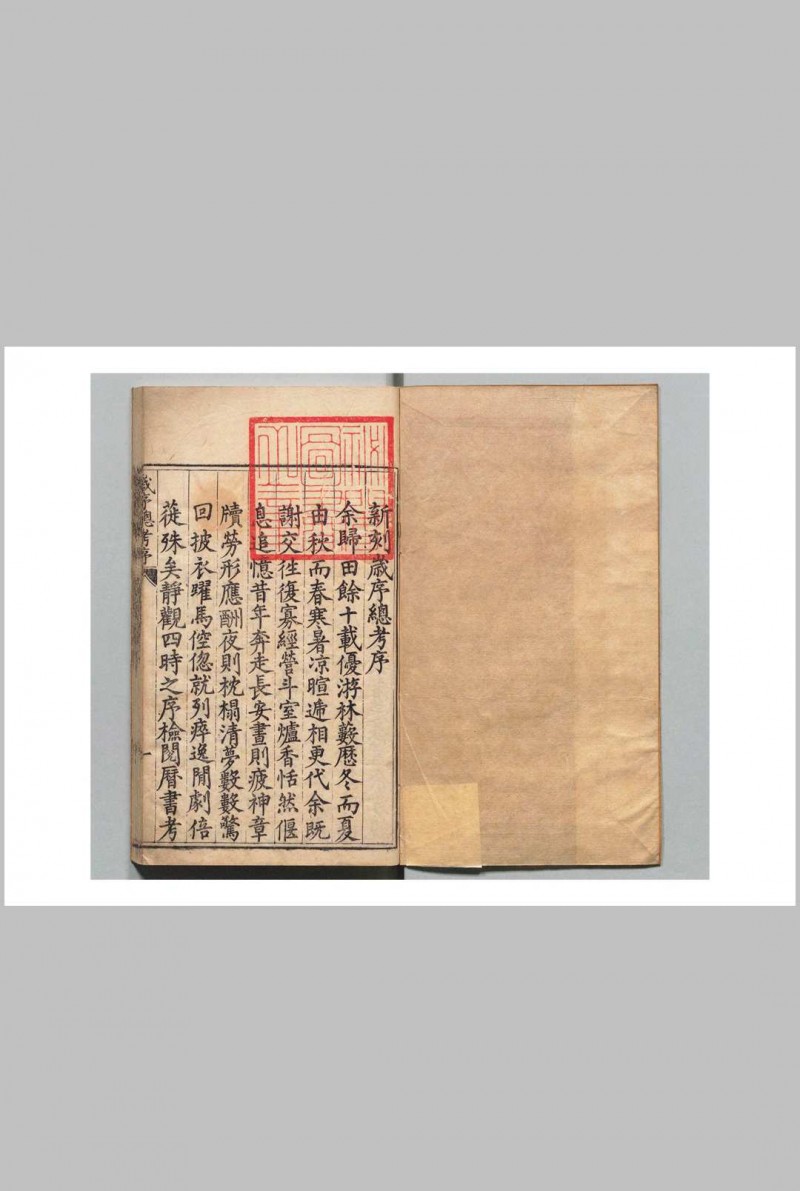 新刻歲序總考序
余歸田餘十載優游林藪歷冬而夏
由秋而春寒暑凉暄遞相更代余既
謝交往復寡經營斗室爐香恬然偃
息追憶昔年奔走長安晝則疲神章
牘勞形應酬夜則枕榻清夢數數驚
回披衣躍馬倥偬就列瘁逸閒劇倍
蓰殊矣靜觀四時之序檢閱曆書考
歲序總考序
一